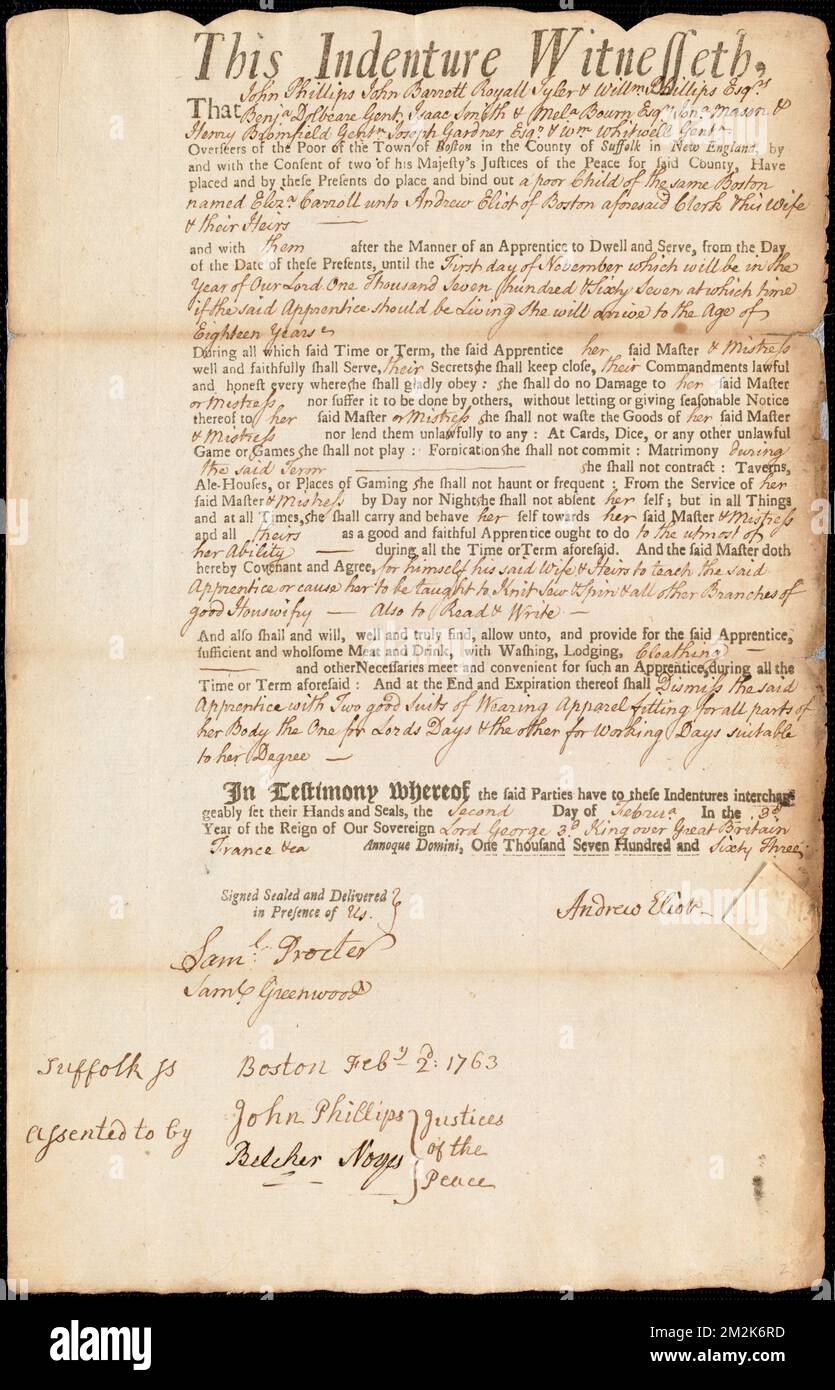 This Indenture Witnesseth,
John Phillips John Barrett Royall Tyler & Willm Phillips Esqrs
That Benja Dolbeare Gent, Isaac Smith & Mela Bourn Esqrs Jona Mason &
Henry Bromfield Gentn Joseph Gardner Esqr & Wm Whitwell Gentn
Overseers of the Poor of the Town of Boston in the County of Suffolk in New England, by
and with the Consent of two of his Majesty's Justices of the Peace for said County, Have
placed and by these Presents do place and bind out a poor Child of the same Boston
named Elizа Carroll unto Andrew Eliot of Boston aforesaid Clerk & his Wife
& their Heirs
and with them after the Manner of an Apprentice to Dwell and Serve, from the Day
of the Date of these Presents, until the First day of November which will be in the
Year of Our Lord One Thousand Seven hundred & Sixty Seven at which time
if the said Apprentice should be Living she will arrive to the Age of
Eighteen Years
During all which said Time or Term, the said Apprentice her said Master & Mistress
well and faithfully shall Serve, their Secrets she shall keep close, their Commandments lawful
and honest every where she shall gladly obey: she shall do no Damage to her said Master
or Mistress nor suffer it to be done by others, without letting or giving seasonable Notice
thereof to her said Master or Mistress she shall not waste the Goods of her said Master
& Mistress nor lend them unlawfully to any: At Cards, Dice, or any other unlawful
Game or Games she shall not play: Fornication she shall not commit: Matrimony during
the said Term she shall not contract: Taverns,
Ale-Houses, or Places of Gaming she shall not haunt or frequent: From the Service of her
said Master & Mistress by Day nor Night she shall not absent her self; but in all Things
and at all Times, she shall carry and behave her self towards her said Master & Mistress
and all theirs as a good and faithful Apprentice ought to do to the utmost of
her Ability during all the Time or Term aforesaid. And the said Master doth
hereby Covenant and Agree, for himself his said Wife & Heirs to teach the said
Apprentice or cause her to be taught to Knit Sew & Spin & all other Branches of
good Houswifry — Also to Read & Write —
And also shall and will, well and truly find, allow unto, and provide for the said Apprentice,
sufficient and wholsome Meat and Drink, with Washing, Lodging, Cloathing —
and other Necessaries meet and convenient for such an Apprentice, during all the
Time or Term aforesaid: And at the End and Expiration thereof shall Dismiss the said
Apprentice with Two good Suits of Wearing Apparel fitting for all parts of
her Body the One for Lords Days & the other for Working Days suitable
to her Degree —
In Testimony whereof the said Parties have to these Indentures interchan-
geably set their Hands and Seals, the Second Day of Februa In the 3d
Year of the Reign of Our Sovereign Lord George 3d King over Great Britain
France &ca Annoque Domini, One Thousand Seven Hundred and Sixty Three
Signed Sealed and Delivered
in Presence of Us.
Andrew Eliot
Saml Procter
Saml Greenwood
Suffolk ss Boston Feby 2d: 1763
Assented to by John Phillips Justices
Belcher Noyes of the
Peace
alamy
Image ID: 2M2K6RD
www.alamy.com